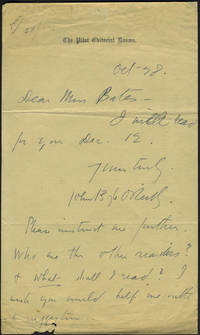 The Pilot Editorial Rooms.
Oct 28.
Dear Miss Bates –
I will read
for you Dec. 12.
Yours truly,
John Boyle O'Reilly
Please instruct me further.
Who are the other readers?
& what shall I read? I
wish you would help me with
a suggestion